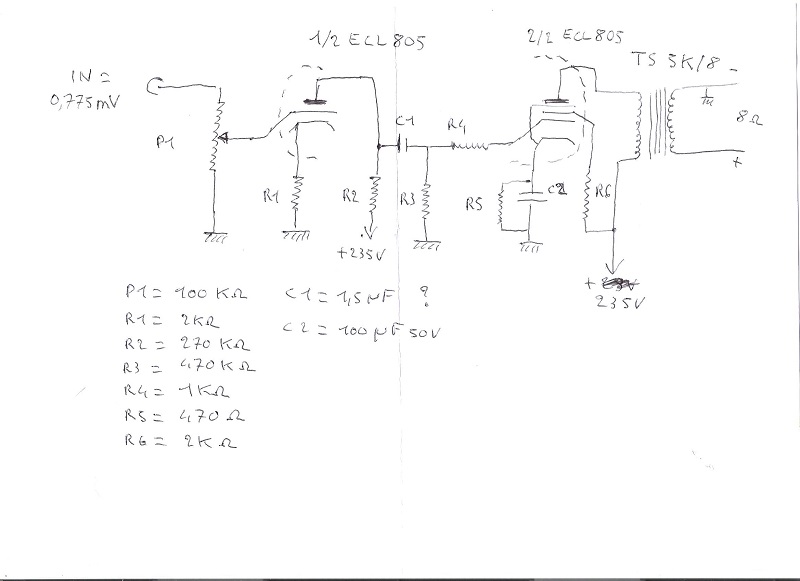 1/2 ECL805
2/2 ECL805
TS 5K/8
IN =
0,775mV
P1
C1
R4
8Ω
+
-
R1
R2
R3
R5
C2
R6
+235V
+
235V
P1 = 100 KΩ
R1 = 2KΩ
R2 = 270 KΩ
R3 = 470KΩ
R4 = 1KΩ
R5 = 470 Ω
R6 = 2KΩ
C1 = 1,5 µF ?
C2 = 100 µF 50V